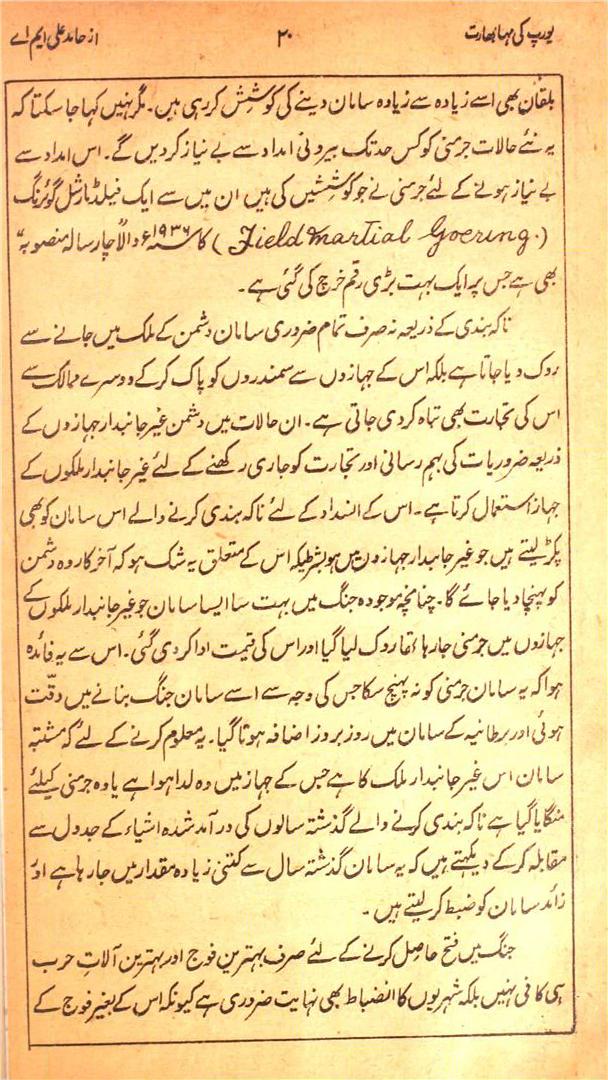 یورپ کی مہابھارت
۲۰
از حامد علی ایم اے
بلقان بھی اسے زیادہ سے زیادہ سامان دینے کی کوشش کر رہی ہیں۔ مگر نہیں کہا جا سکتا کہ
یہ نئے حالات جرمنی کو کس حد تک بیرونی امداد سے بے نیاز کر دیں گے۔ اس امداد سے
بے نیاز ہونے کے لئے جرمنی نے جو کوششیں کی ہیں ان میں سے ایک فیلڈ مارشل گوئرنگ
(Field martial Goering.) کا ۱۹۳۶ء والا چار سالہ منصوبہ
بھی ہے جس پر ایک بہت بڑی رقم خرچ کی گئی ہے۔
ناکہ بندی کے ذریعہ نہ صرف تمام ضروری سامان دشمن کے ملک میں جانے سے
روک دیا جاتا ہے بلکہ اس کے جہازوں سے سمندروں کو پاک کر کے دوسرے ممالک سے
اس کی تجارت بھی تباہ کر دی جاتی ہے۔ ان حالات میں دشمن غیر جانبدار جہازوں کے
ذریعہ ضروریات کی بہم رسانی اور تجارت کو جاری رکھنے کے لئے غیر جانبدار ملکوں کے
جہاز استعمال کرتا ہے۔ اس کے انسداد کے لئے ناکہ بندی کرنے والے اس سامان کو بھی
پکڑ لیتے ہیں جو غیر جانبدار جہازوں میں ہو بشرطیکہ اس کے متعلق یہ شک ہو کہ آخر کار وہ دشمن
کو پہنچا دیا جائے گا۔ چنانچہ موجودہ جنگ میں بہت سا ایسا سامان جو غیر جانبدار ملکوں کے
جہازوں میں جرمنی جا رہا تھا روک لیا گیا اور اس کی قیمت ادا کر دی گئی۔ اس سے یہ فائدہ
ہوا کہ یہ سامان جرمنی کو نہ پہنچ سکا جس کی وجہ سے اسے سامان جنگ بنانے میں دقّت
ہوئی اور برطانیہ کے سامان میں روز بروز اضافہ ہوتا گیا۔ یہ معلوم کرنے کے لئے کہ مشتبہ
سامان اس غیر جانبدار ملک کا ہے جس کے جہاز میں وہ لدا ہوا ہے یا وہ جرمنی کیلئے
منگایا گیا ہے ناکہ بندی کرنے والے گذشتہ سالوں کی درآمد شدہ اشیاء کے جدول سے
مقابلہ کر کے دیکھتے ہیں کہ یہ سامان گذشتہ سال سے کتنی زیادہ مقدار میں جا رہا ہے اور
زائد سامان کو ضبط کر لیتے ہیں۔
جنگ میں فتح حاصل کرنے کے لئے صرف بہترین فوج اور بہترین آلاتِ حرب
ہی کافی نہیں بلکہ شہریوں کا انضباط بھی نہایت ضروری ہے کیونکہ اس کے بغیر فوج کے